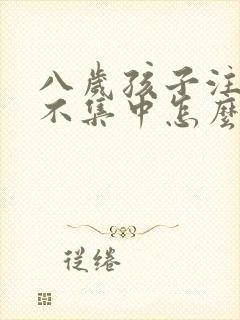 八歲孩子注
不集中怎麼
從绻